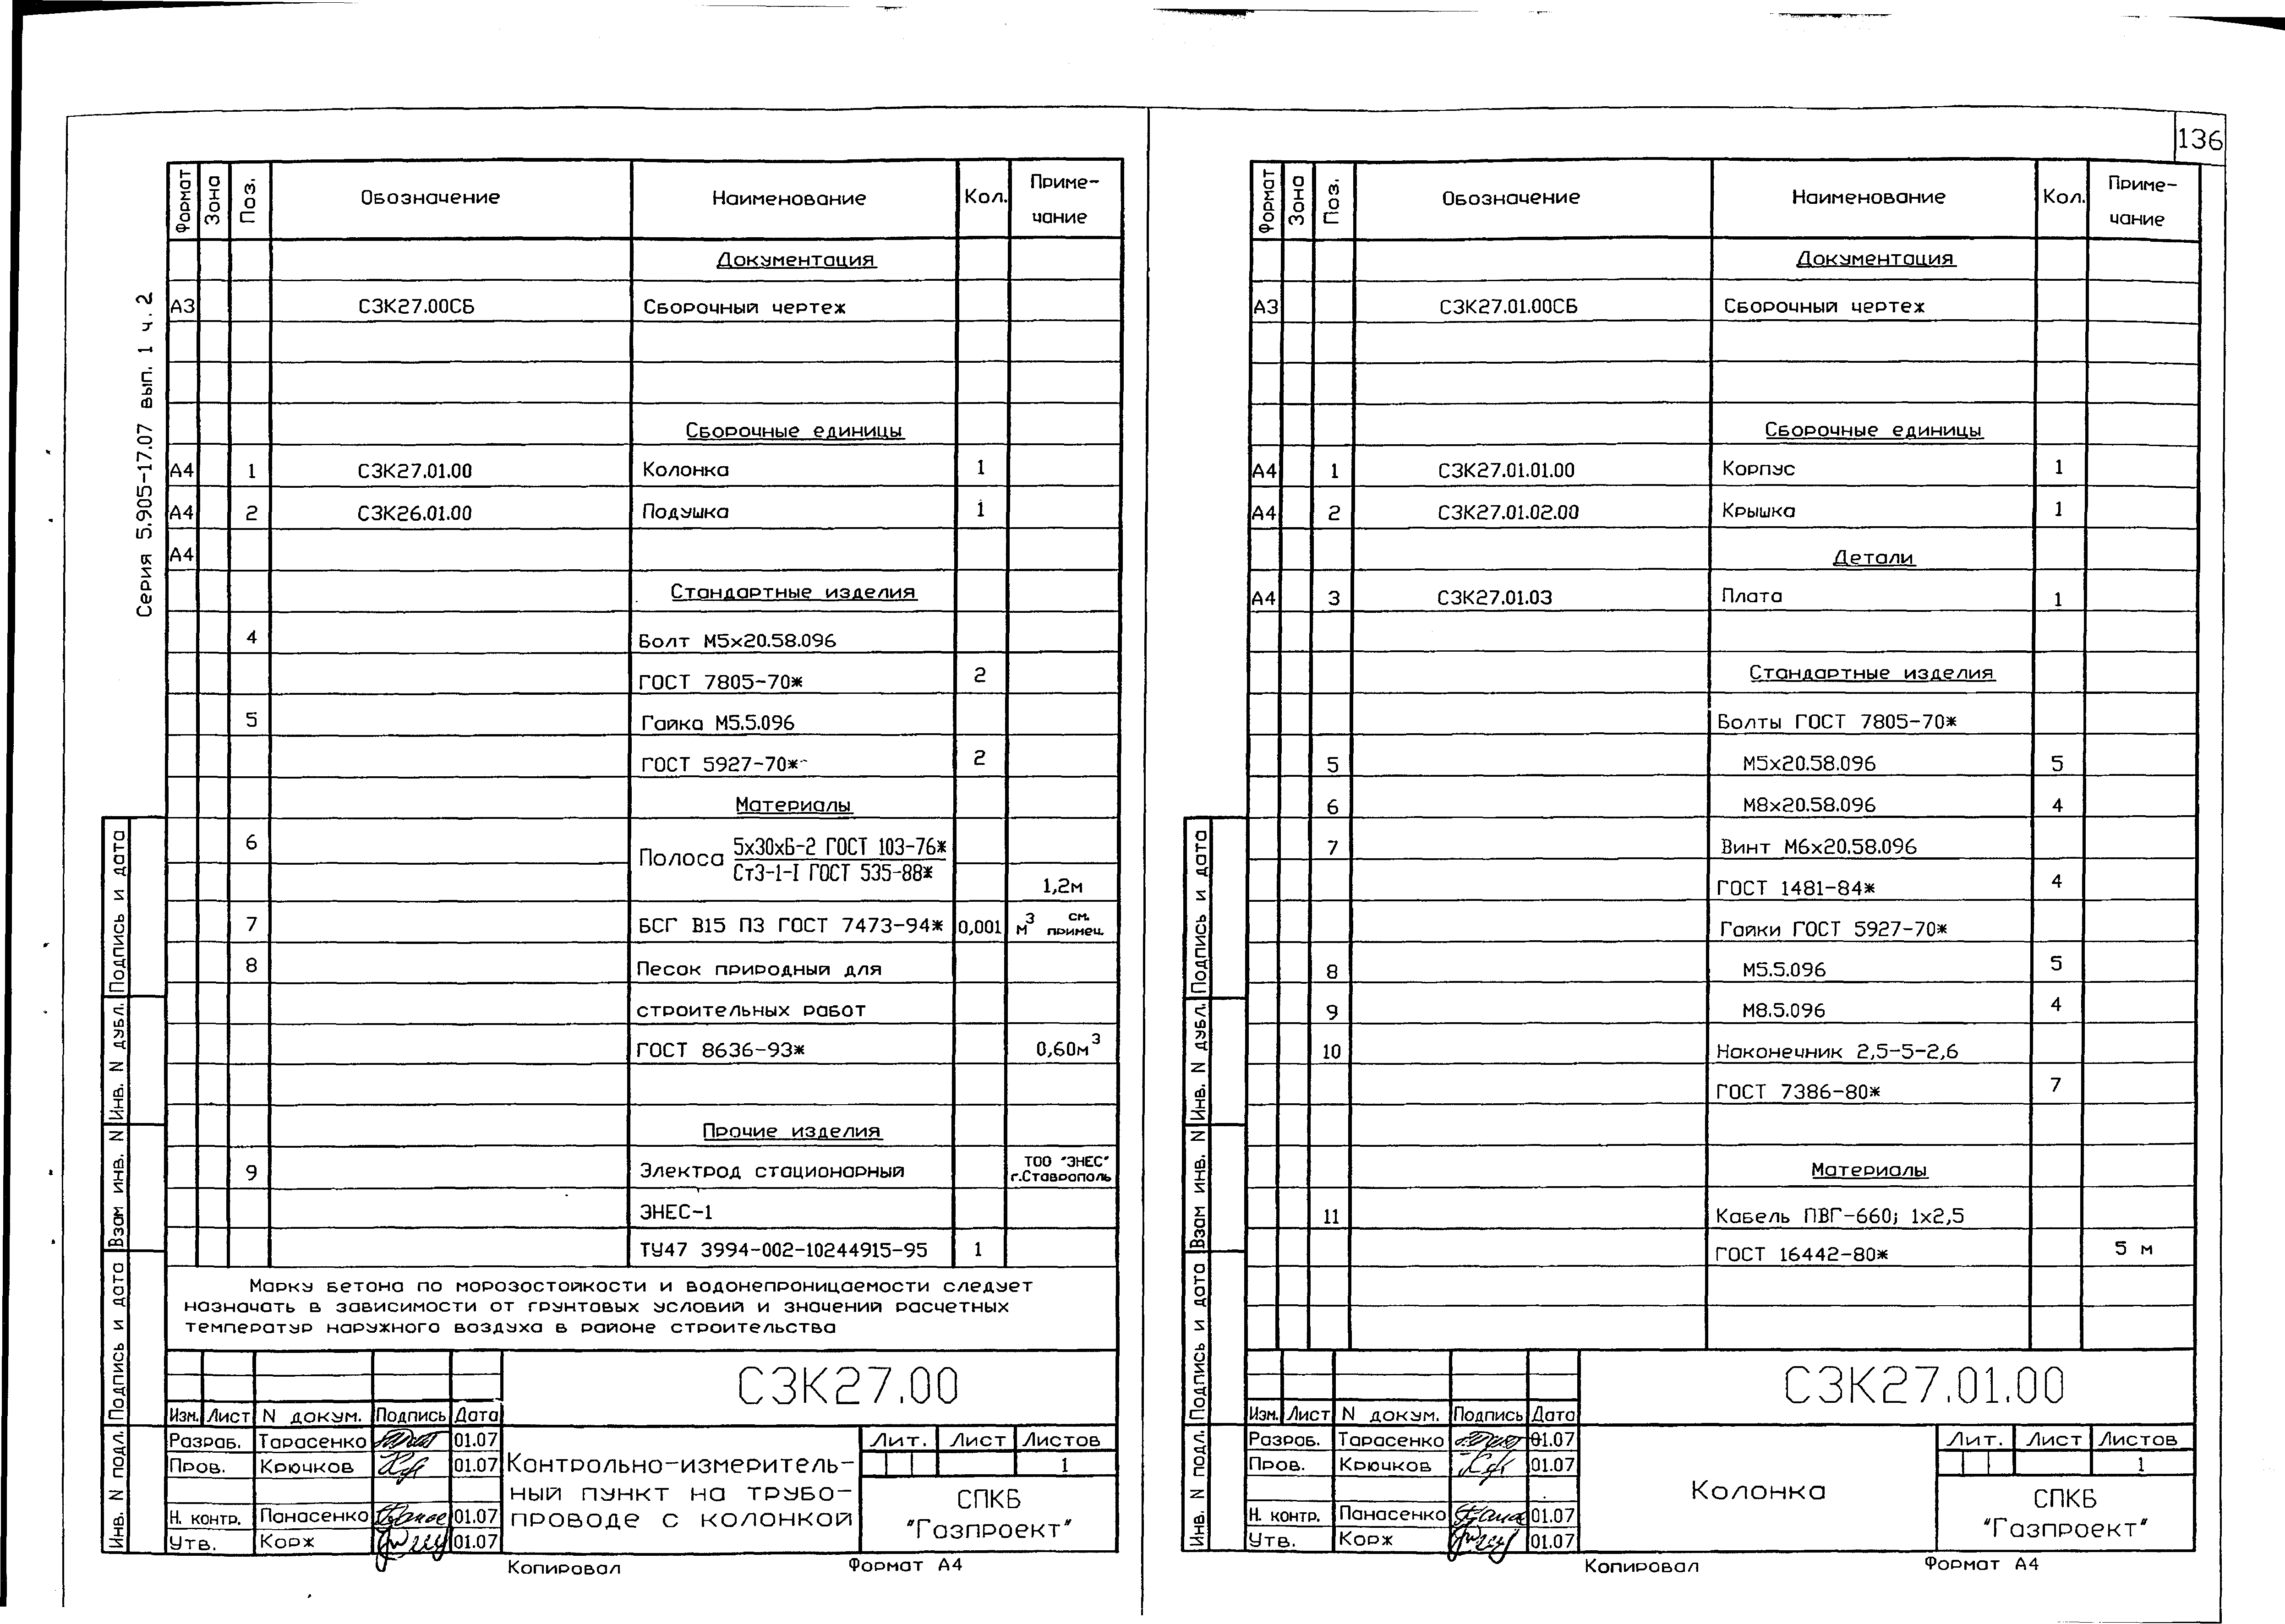 136
Серия 5.905-17.07 вып. 1 ч. 2
Формат Зона Поз. Обозначение Наименование Кол. Приме-
чание
Документация
А3 СЗК27.00СБ Сборочный чертеж
Сборочные единицы
А4 1 СЗК27.01.00 Колонка 1
А4 2 СЗК26.01.00 Подушка 1
А4
Стандартные изделия
4 Болт М5х20.58.096
ГОСТ 7805-70* 2
5 Гайка М5.5.096
ГОСТ 5927-70* 2
Материалы
6 Полоса 5х30хБ-2 ГОСТ 103-76*
Ст3-1-I ГОСТ 535-88*
1,2м
7 БСГ В15 П3 ГОСТ 7473-94* 0,001 м³ см. примеч.
8 Песок природный для
строительных работ
ГОСТ 8636-93* 0,60м³
Прочие изделия
9 Электрод стационарный ТОО "ЭНЕС"
г.Ставрополь
ЭНЕС-1
ТУ47 3994-002-10244915-95 1
Марку бетона по морозостойкости и водонепроницаемости следует
назначать в зависимости от грунтовых условий и значений расчетных
температур наружного воздуха в районе строительства
СЗК27.00
Изм. Лист N докум. Подпись Дата
Разраб. Тарасенко 01.07
Пров. Крючков 01.07
Н. контр. Панасенко 01.07
Утв. Корж 01.07
Контрольно-измеритель-
ный пункт на трубо-
проводе с колонкой
Лит. Лист Листов
1
СПКБ
"Газпроект"
Копировал Формат А4
Инв. N подл. Подпись и дата Взам инв. N Инв. N дубл. Подпись и дата
Формат Зона Поз. Обозначение Наименование Кол. Приме-
чание
Документация
А3 СЗК27.01.00СБ Сборочный чертеж
Сборочные единицы
А4 1 СЗК27.01.01.00 Корпус 1
А4 2 СЗК27.01.02.00 Крышка 1
Детали
А4 3 СЗК27.01.03 Плата 1
Стандартные изделия
Болты ГОСТ 7805-70*
5 М5х20.58.096 5
6 М8х20.58.096 4
7 Винт М6х20.58.096
ГОСТ 1481-84* 4
Гайки ГОСТ 5927-70*
8 М5.5.096 5
9 М8.5.096 4
10 Наконечник 2,5-5-2,6
ГОСТ 7386-80* 7
Материалы
11 Кабель ПВГ-660; 1х2,5
ГОСТ 16442-80* 5 м
СЗК27.01.00
Изм. Лист N докум. Подпись Дата
Разраб. Тарасенко 01.07
Пров. Крючков 01.07
Н. контр. Панасенко 01.07
Утв. Корж 01.07
Колонка
Лит. Лист Листов
1
СПКБ
"Газпроект"
Копировал Формат А4
Инв. N подл. Подпись и дата Взам инв. N Инв. N дубл. Подпись и дата